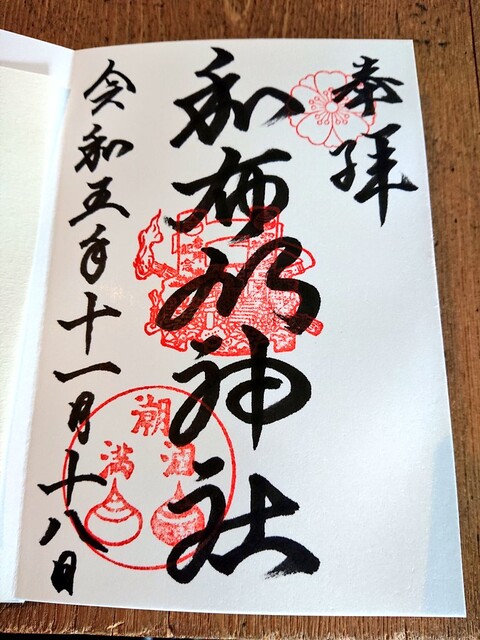 奉拝
和布刈神社
令和五年十一月十八日
潮
満 涸